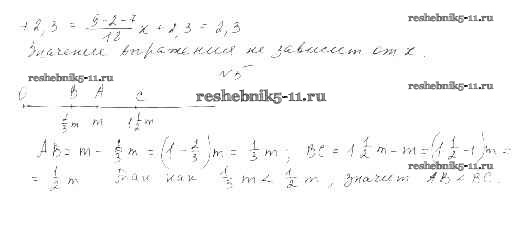 + 2,3 = \frac{9-2-7}{12} x + 2,3 = 2,3
reshebnik5-11.ru
Значение выражения не зависит от x.
№5
reshebnik5-11.ru
O B A C
reshebnik5-11.ru
1/3 m m 1 1/2 m
AB = m - 2/3 m = (1 - 2/3) m = 1/3 m; BC = 1 1/2 m - m = (1 1/2 - 1) m =
reshebnik5-11.ru
= 1/2 m Так как 1/3 m < 1/2 m, значит AB < BC.